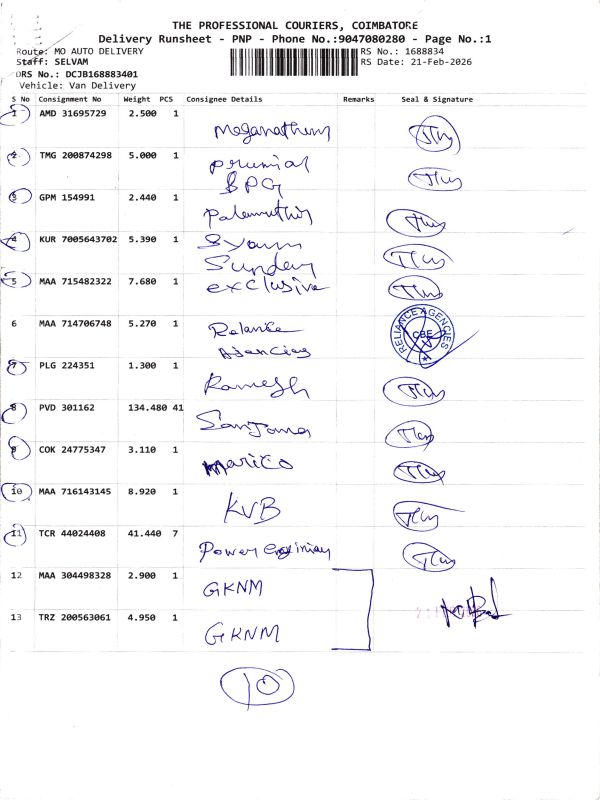 THE PROFESSIONAL COURIERS, COIMBATORE
Delivery Runsheet - PNP - Phone No.:9047080280 - Page No.:1
Route: MO AUTO DELIVERY
RS No.: 1688834
Staff: SELVAM
RS Date: 21-Feb-2026
DRS No.: DCJB168883401
Vehicle: Van Delivery
S No Consignment No Weight PCS Consignee Details Remarks Seal & Signature
1 AMD 31695729 2.500 1
Meganathum
2 TMG 200874298 5.000 1
BPG
3 GPM 154991 2.440 1
4 KUR 7005643702 5.390 1
Syam
Sundar
5 MAA 715482322 7.680 1 exclusive
6 MAA 714706748 5.270 1 Relance
Ajancies
RELIANCE AGENCIES
CBE
7 PLG 224351 1.300 1
Ramesh
8 PVD 301162 134.480 41
9 COK 24775347 3.110 1
Marico
10 MAA 716143145 8.920 1
KVB
11 TCR 44024408 41.440 7
Power
12 MAA 304498328 2.900 1
GKNM
13 TRZ 200563061 4.950 1
GKNM
10